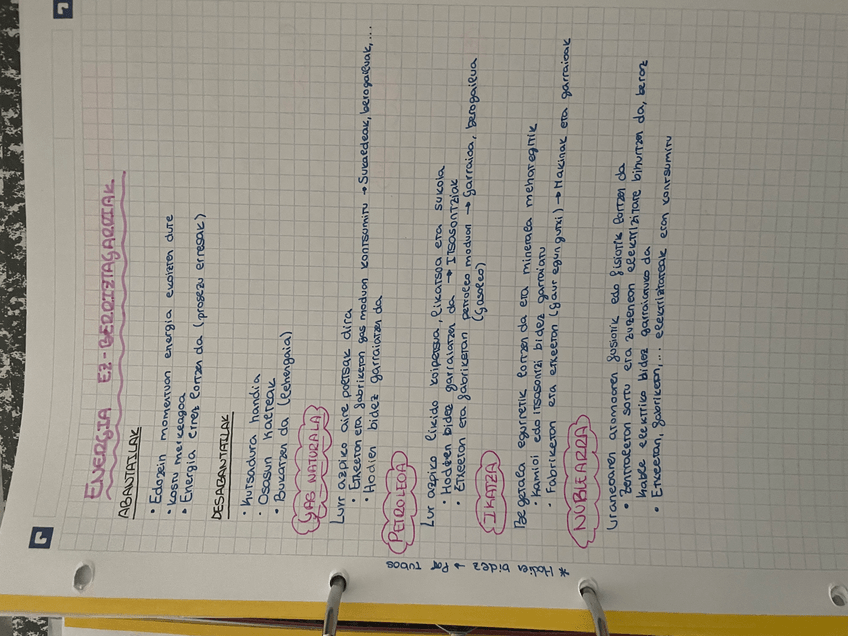 ENERGIA EZ-BERRIZTAGARRIAK
ABANTAILAK
• Edozein momentuan energia ekoizten dute
• Kostu merkeagoa
• Energia errez lortzen da (prozesu errezak)
DESABANTAILAK
• Kutsadura handia
• Osasun kalteak
• Bukatzen da (lehengaia)
GAS NATURALA
Lurr azpiko aire poltsak dira
• Etxeetan eta fabriketan gas moduan kontsumitu → Sukaldeak, berogailuak,...
• Hodien bidez garraiatzen da
PETROLEOA
Lur azpiko likido koipetsua, likatsua eta sukoia
• Hodien bidez garraiatzen da → Itsasontziak
• Etxeetan eta fabriketan petroleo moduan → Garraioa, berogailua
(Gasoleo)
IKATZA
Begetala egurretik lortzen da eta minerala meharegitik
• Kamioi edo itsasontzi bidez garraiatu
• Fabriketan eta etxeetan (gaur egun gutxi) → Makinak eta garraioak
NUKLEARRA
Uranioaren atomoaren fusiotik edo fisiotik lortzen da
• Zentraletan sortu eta zuzenean elektrizitate bihurtzen da, beraz
kable elektriko bidez garraiatuko da
• Etxeetan, fabriketan,... elektrizitateak eran kontsumitu
* Hodien bidez → Por tubos